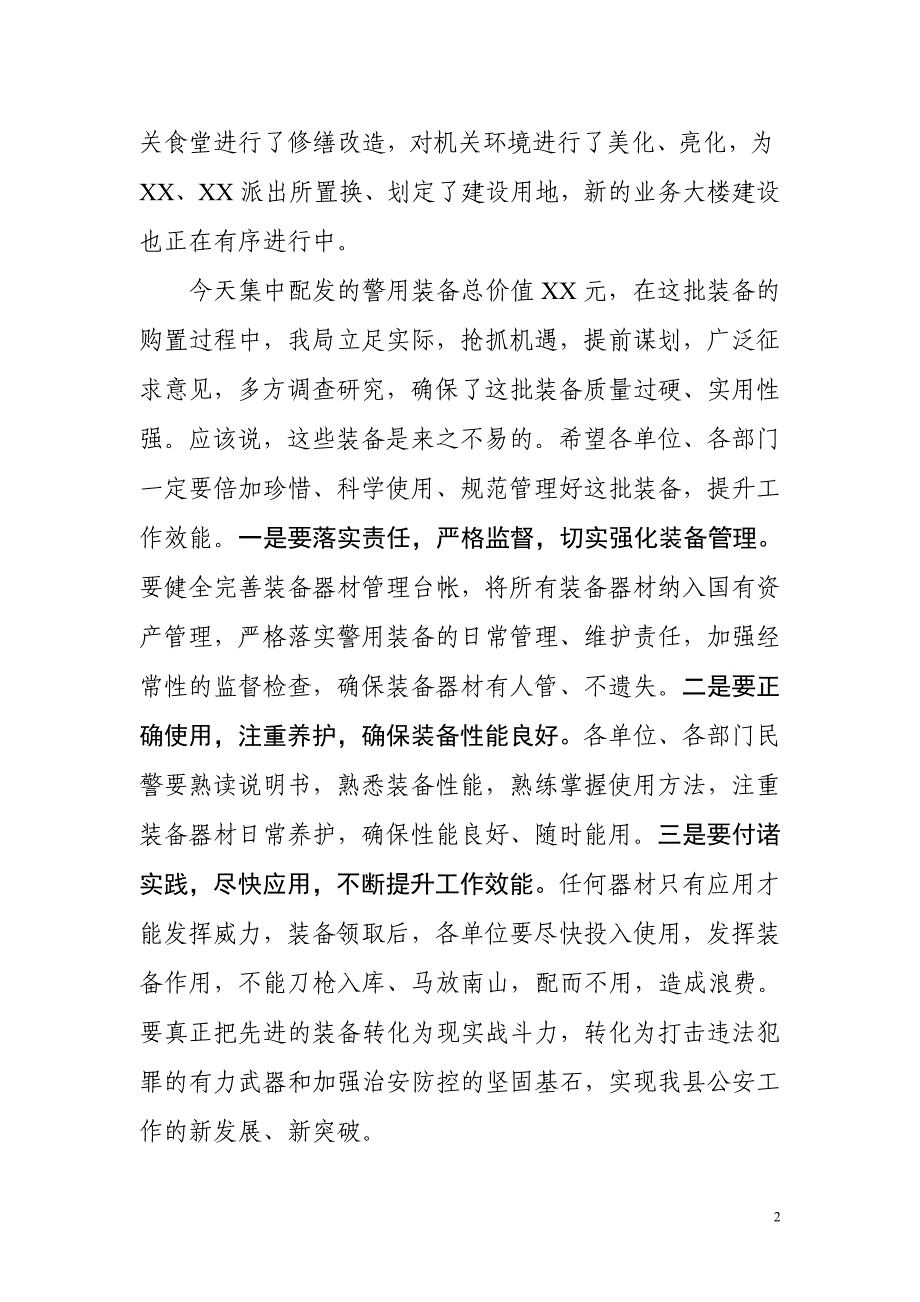 关食堂进行了修缮改造，对机关环境进行了美化、亮化，为
XX、XX 派出所置换、划定了建设用地，新的业务大楼建设
也正在有序进行中。
今天集中配发的警用装备总价值 XX 元，在这批装备的
购置过程中，我局立足实际，抢抓机遇，提前谋划，广泛征
求意见，多方调查研究，确保了这批装备质量过硬、实用性
强。应该说，这些装备是来之不易的。希望各单位、各部门
一定要倍加珍惜、科学使用、规范管理好这批装备，提升工
作效能。一是要落实责任，严格监督，切实强化装备管理。
要健全完善装备器材管理台帐，将所有装备器材纳入国有资
产管理，严格落实警用装备的日常管理、维护责任，加强经
常性的监督检查，确保装备器材有人管、不遗失。二是要正
确使用，注重养护，确保装备性能良好。各单位、各部门民
警要熟读说明书，熟悉装备性能，熟练掌握使用方法，注重
装备器材日常养护，确保性能良好、随时能用。三是要付诸
实践，尽快应用，不断提升工作效能。任何器材只有应用才
能发挥威力，装备领取后，各单位要尽快投入使用，发挥装
备作用，不能刀枪入库、马放南山，配而不用，造成浪费。
要真正把先进的装备转化为现实战斗力，转化为打击违法犯
罪的有力武器和加强治安防控的坚固基石，实现我县公安工
作的新发展、新突破。
2